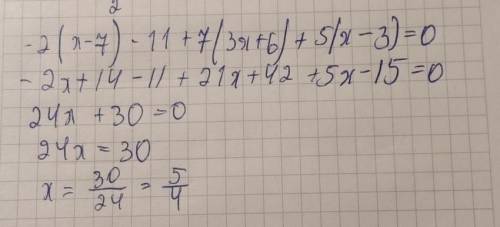 2
-2(x-7) - 11 + 7(3x+6) + 5(x-3)=0
- 2x+14 - 11 + 21x+42 +5x-15=0
24x +30=0
24x = 30
x = 30/24 = 5/4